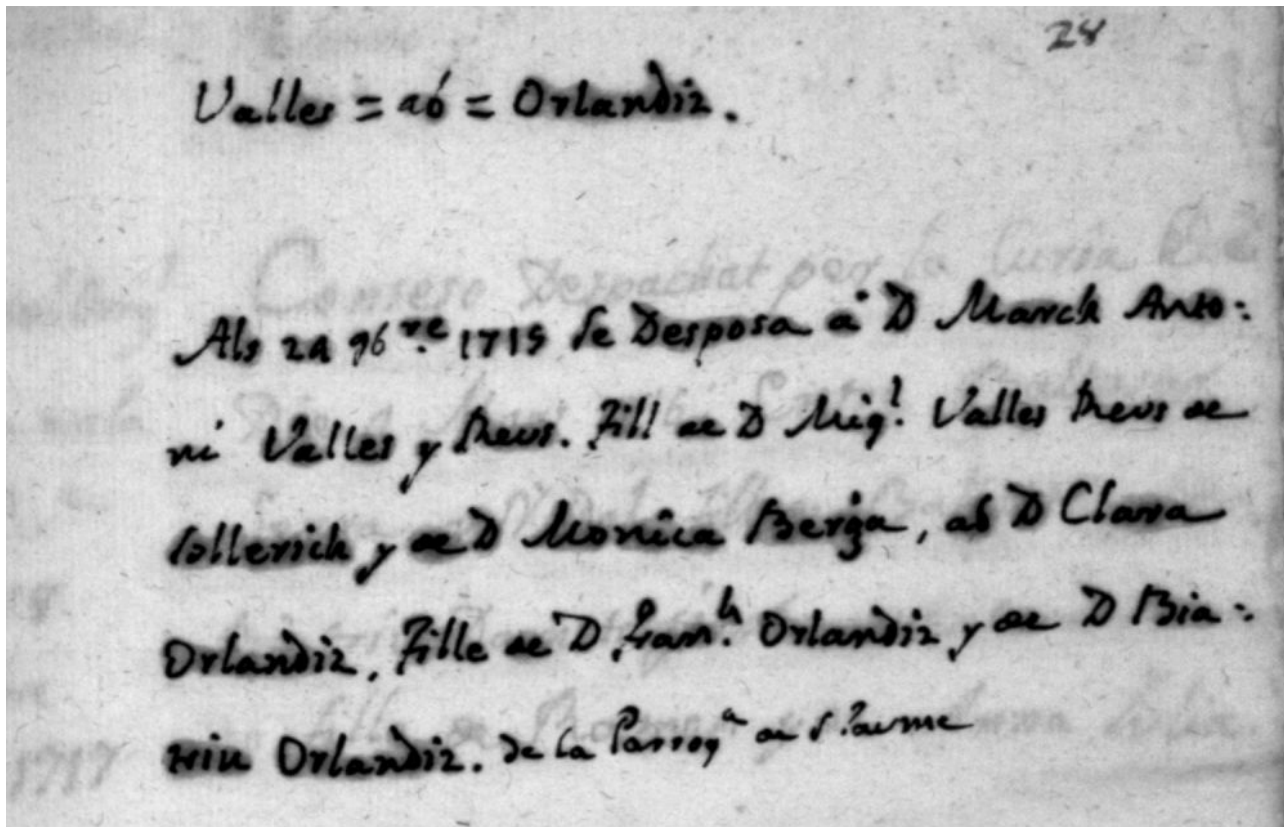 28
Valles = aб = Orlandiz.
Als 24 9б.re 1715 se Desposa á D March Anto:
ni Valles y Reus. Fill de D Miq.l Valles Reus de
sollerich y de D Monica Berga, ab D Clara
Orlandiz, Fille de D Fran.h Orlandiz y de D Bia:
niu Orlandiz. de la Parroq.a de S Jaume